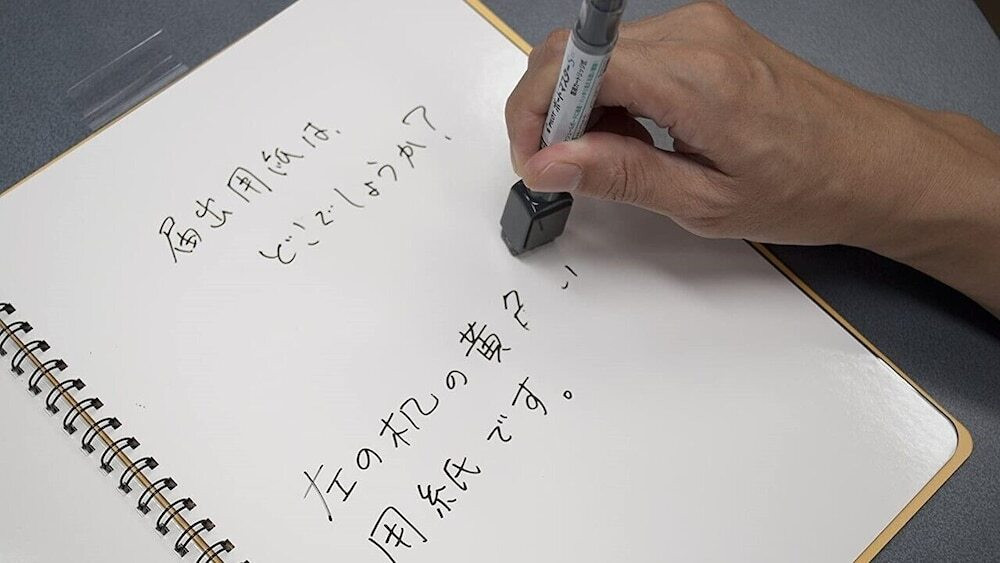 届出用紙は、
どこでしょうか?
左の机の黄色い
用紙です。
PILOT ボードマスターS